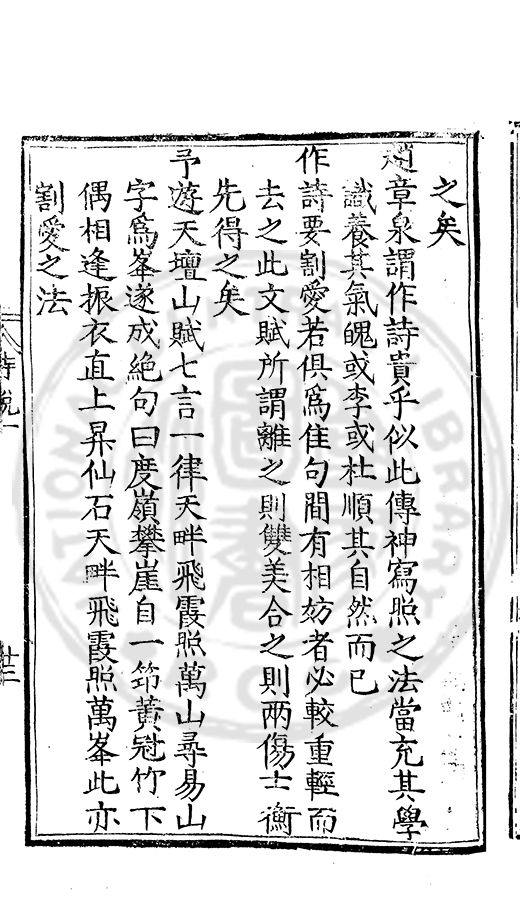 之矣
趙章泉謂作詩貴乎似此傳神寫照之法當充其學
識養其氣魄或李或杜順其自然而已
作詩要割愛若俱為佳句間有相妨者必較重輕而
去之此文賦所謂離之則雙美合之則兩傷士衡
先得之矣
予遊天壇山賦七言一律天畔飛霞照萬山尋易山
字為峯遂成絕句曰度嶺攀崖自一筇黃冠竹下
偶相逢振衣直上昇仙石天畔飛霞照萬峯此亦
割愛之法
詩說一
廿二